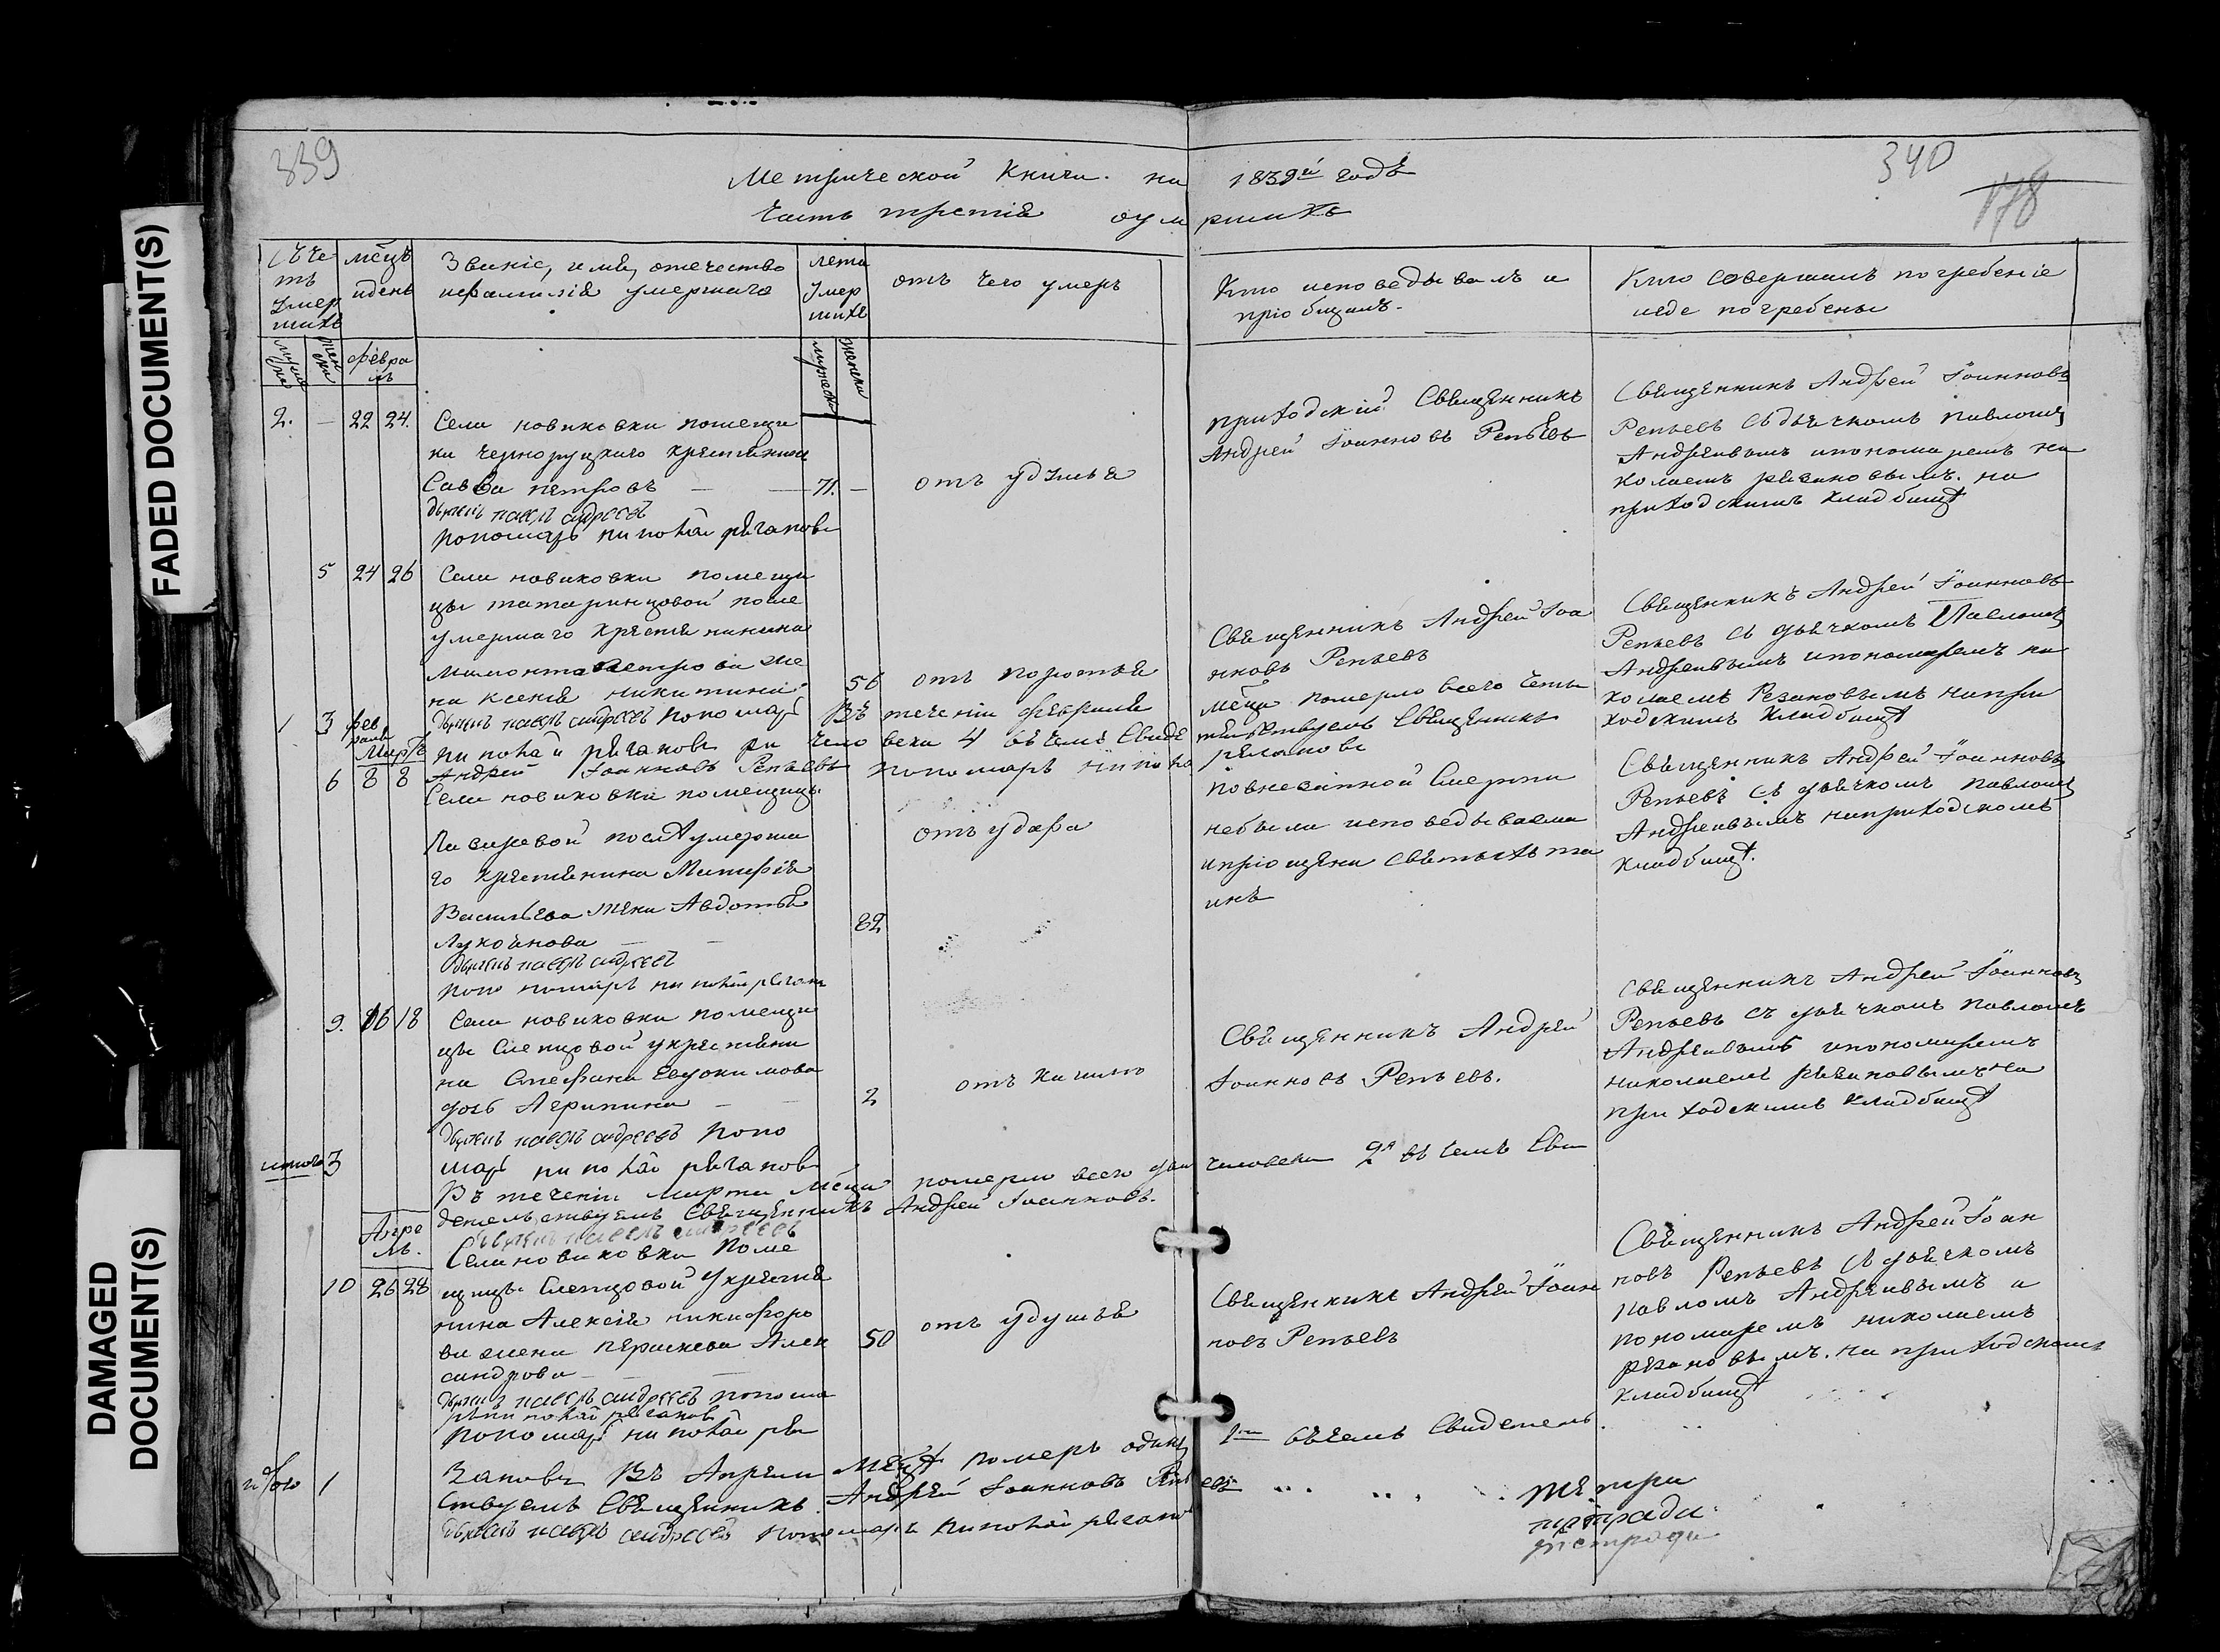 FADED DOCUMENT(S)
DAMAGED
DOCUMENT(S)
339
340
178
Метрической Книги на 1839й годъ
Часть третія оумершихъ
Счетъ умершихъ
мѣсцъ и день
Званіе, имя, отечество
и фамилія умершаго
лета умершихъ
отъ чего умеръ
Кто исповедывалъ и
пріобщалъ.
Кто совершалъ погребеніе
и где погребены
февраль
2. — 22 24.
Села новиковки помещи
ка Черноруцкаго крестьянинъ
Савва петровъ — — 71. —
дьячекъ павелъ андреевъ
пономарь николай резановъ
отъ удушья
приходскій Священникъ
Андрей Іоанновъ Репьевъ
Священникъ Андрей Іоанновъ
Репьевъ съ дьячкомъ павломъ
Андреевымъ и пономаремъ ни
колаемъ резановымъ. на
приходскимъ кладбищѣ
5 24 26
Села новиковки помещи
цы татаринцовой после
умершаго крестьянина
мамонта петрова же
на ксенія никитина 56
отъ поротья
Священникъ Андрей Іоа
нновъ Репьевъ
Священникъ Андрей Іоанновъ
Репьевъ съ дьячкомъ Павломъ
Андреевымъ и пономаремъ ни
колаемъ Резановымъ на при
ходскимъ кладбищѣ
1 3 февраля
дьячекъ павелъ андреевъ пономарь
николай резановъ
Въ теченіи февраля мѣсца померло всего четы
ри человека 4 въ чемъ свидетельствуемъ Священникъ
Андрей Іоанновъ Репьевъ пономарь николай резановъ
Мартъ
6 8 8
Села новиковки помещицы
после умерша
го крестьянина Митрофія
Васильева жена Авдотья
Лукоянова — — 82
дьячекъ павелъ андреевъ
пономарь николай резановъ
отъ удара
по внезапной смерти
небыла исповедываема
и пріощена святыхъ та
инъ
Священникъ Андрей Іоанновъ
Репьевъ съ дьячкомъ павломъ
Андреевымъ на приходскомъ
кладбищѣ.
9. 16 18
Села новиковки помещи
цы Слепцовой у крестьяни
на Стефана Евдокимова
дочь Агрипина — — 2
дьячекъ павелъ андреевъ поно
марь николай резановъ
отъ кашлю
Священникъ Андрей
Іоанновъ Репьевъ.
Священникъ Андрей Іоанновъ
Репьевъ съ дьячкомъ павломъ
Андреевымъ и пономаремъ
николаемъ резановымъ на
приходскимъ кладбищѣ
итого 3
Въ теченіи марта мѣсца померло всего два человека 2а въ чемъ сви
детельствуемъ Священникъ Андрей Іоанновъ.
дьячекъ павелъ андреевъ
Апрель.
10 26 28
Села новиковки поме
щицы Слепцовой у крестья
нина Алексія никифоро
ва жена параскева Алек
сандрова — — 50
дьячекъ павелъ андреевъ понома
рь николай резановъ
отъ удушья
Священникъ Андрей Іоан
новъ Репьевъ
Священникъ Андрей Іоан
новъ Репьевъ съ дьячкомъ
павломъ Андреевымъ и
пономаремъ николаемъ
резановымъ. на приходскимъ
кладбищѣ
пономарь николай ре
зановъ
итого 1
Въ Апреле мѣсцѣ померъ одинъ 1 въ чемъ Свидетель
ствуемъ Священникъ Андрей Іоанновъ Репьевъ
дьячекъ павелъ андреевъ пономарь николай резановъ